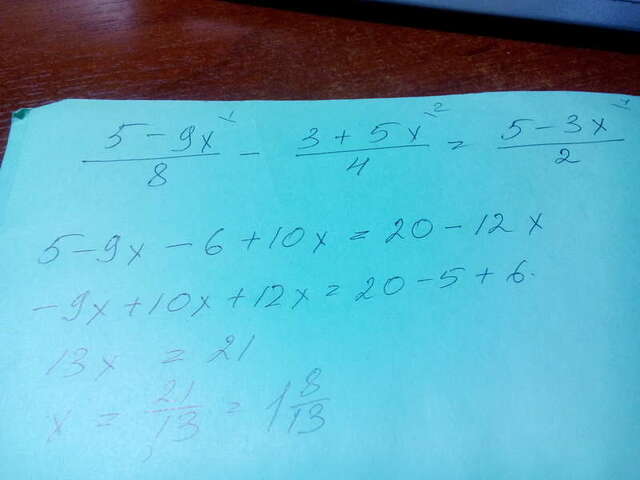 5 - 9x \1 / 8 - 3 + 5x \2 / 4 = 5 - 3x \4 / 2
5 - 9x - 6 + 10x = 20 - 12x
-9x + 10x + 12x = 20 - 5 + 6.
13x = 21
x = 21/13 = 1 8/13